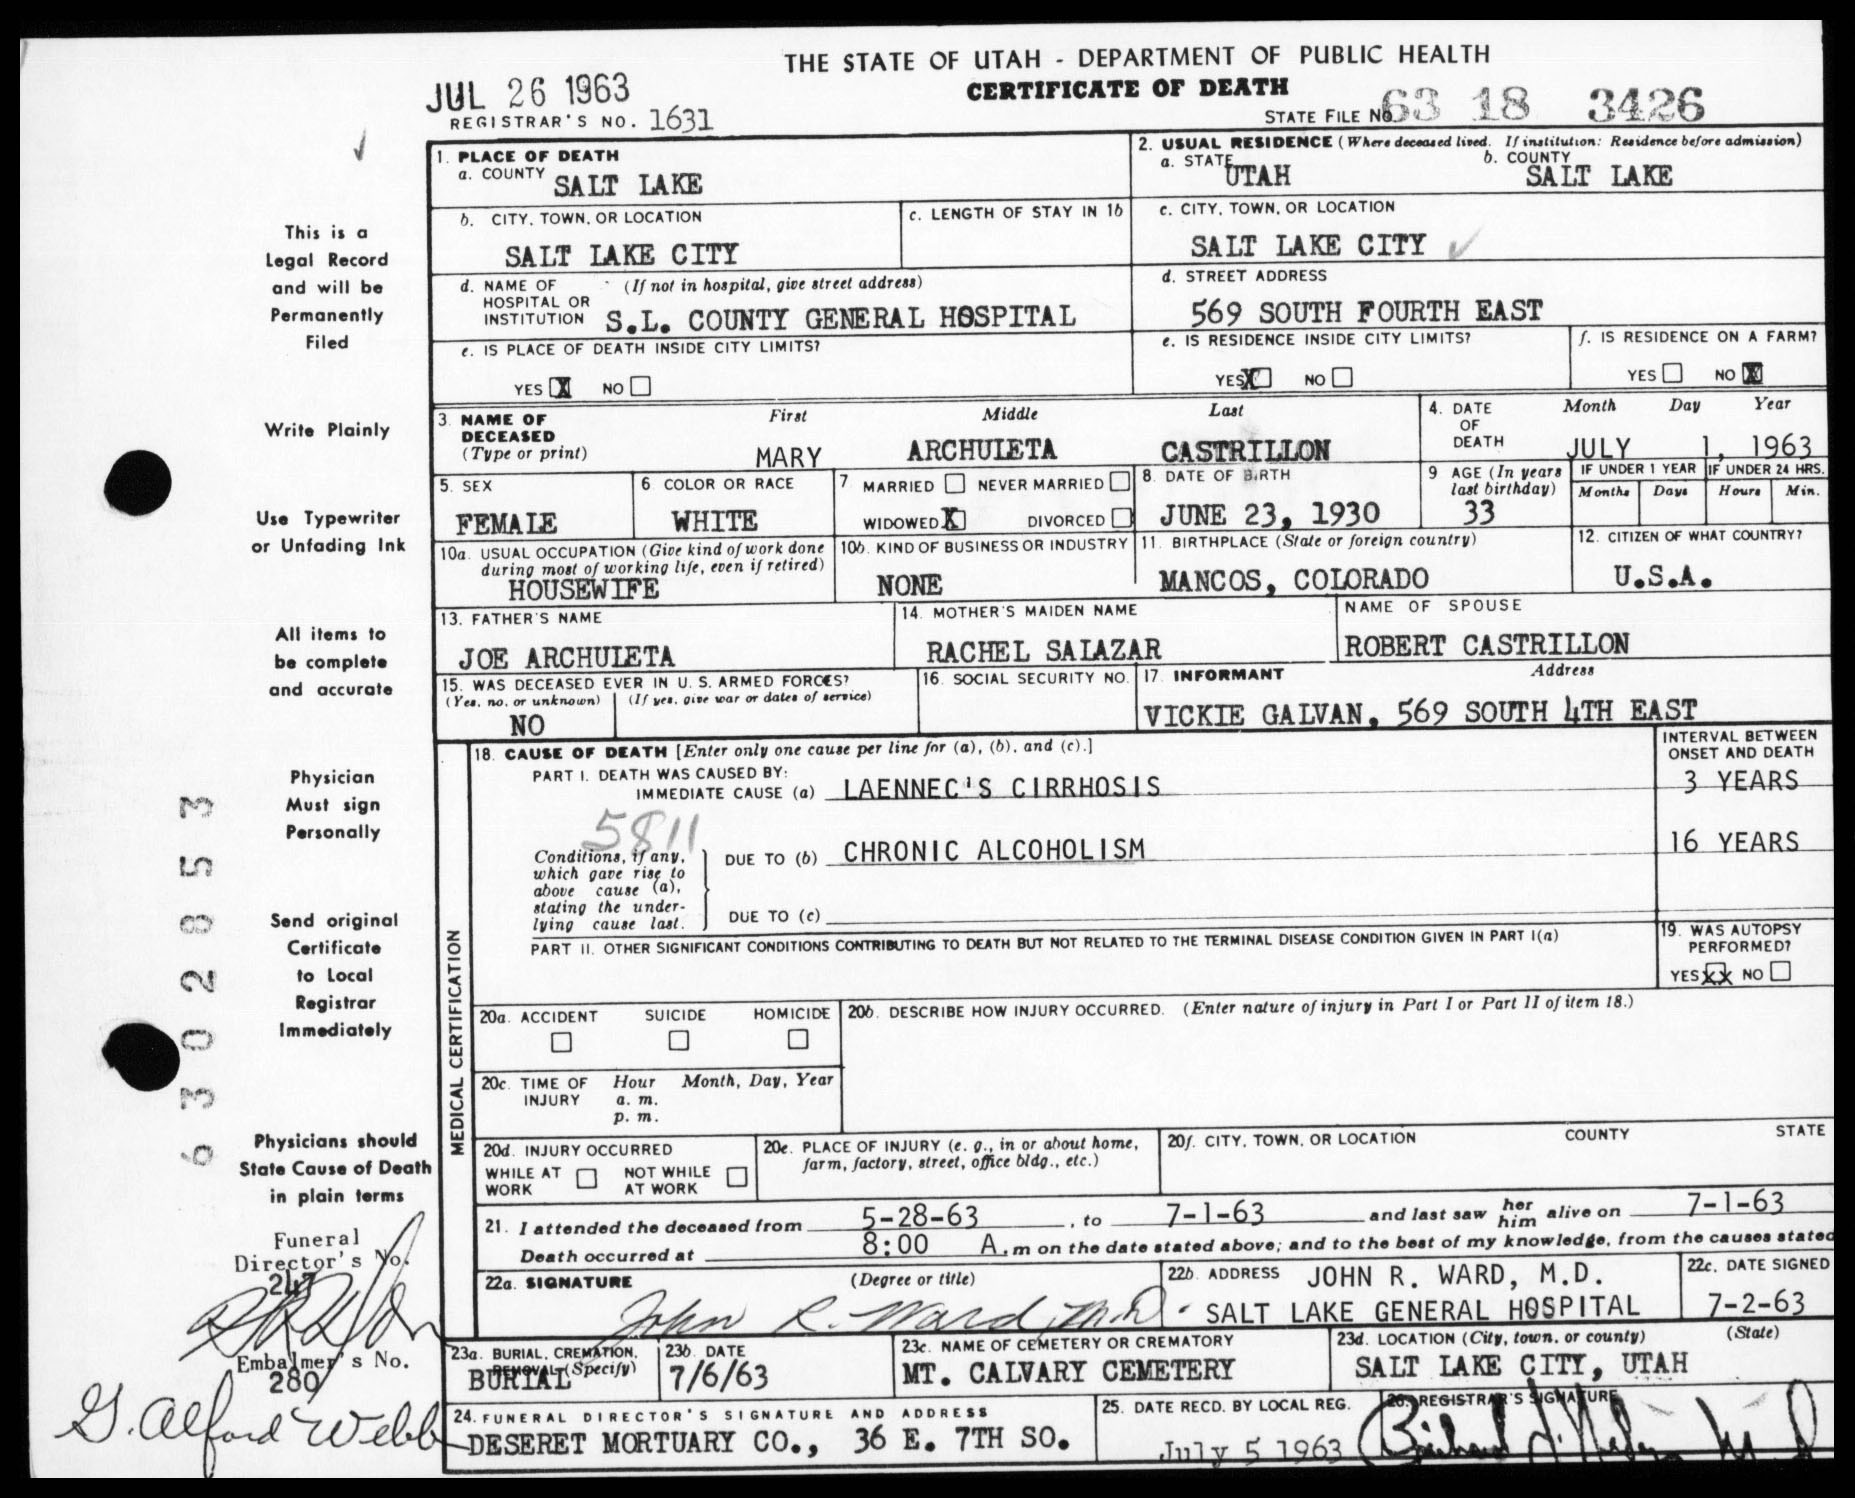 THE STATE OF UTAH - DEPARTMENT OF PUBLIC HEALTH
CERTIFICATE OF DEATH
JUL 26 1963
REGISTRAR'S NO. 1631
STATE FILE NO. 63 18 3426
1. PLACE OF DEATH
a. COUNTY SALT LAKE
2. USUAL RESIDENCE (Where deceased lived. If institution: Residence before admission)
a. STATE UTAH b. COUNTY SALT LAKE
b. CITY, TOWN, OR LOCATION SALT LAKE CITY
c. LENGTH OF STAY IN 1b
c. CITY, TOWN, OR LOCATION SALT LAKE CITY
d. NAME OF HOSPITAL OR INSTITUTION (If not in hospital, give street address) S.L. COUNTY GENERAL HOSPITAL
d. STREET ADDRESS 569 SOUTH FOURTH EAST
e. IS PLACE OF DEATH INSIDE CITY LIMITS?
YES X NO
e. IS RESIDENCE INSIDE CITY LIMITS?
YES X NO
f. IS RESIDENCE ON A FARM?
YES NO X
3. NAME OF DECEASED (Type or print)
First Middle Last
MARY ARCHULETA CASTRILLON
4. DATE OF DEATH Month Day Year
JULY 1, 1963
5. SEX FEMALE
6. COLOR OR RACE WHITE
7. MARRIED NEVER MARRIED
WIDOWED X DIVORCED
8. DATE OF BIRTH JUNE 23, 1930
9 AGE (In years last birthday) 33
IF UNDER 1 YEAR Months Days
IF UNDER 24 HRS. Hours Min.
10a. USUAL OCCUPATION (Give kind of work done during most of working life, even if retired) HOUSEWIFE
10b. KIND OF BUSINESS OR INDUSTRY NONE
11. BIRTHPLACE (State or foreign country) MANCOS, COLORADO
12. CITIZEN OF WHAT COUNTRY? U.S.A.
13. FATHER'S NAME JOE ARCHULETA
14. MOTHER'S MAIDEN NAME RACHEL SALAZAR
NAME OF SPOUSE ROBERT CASTRILLON
15. WAS DECEASED EVER IN U.S. ARMED FORCES?
(Yes, no, or unknown) (If yes, give war or dates of service)
NO
16. SOCIAL SECURITY NO.
17. INFORMANT Address
VICKIE GALVAN, 569 SOUTH 4TH EAST
MEDICAL CERTIFICATION
18. CAUSE OF DEATH [Enter only one cause per line for (a), (b), and (c).]
INTERVAL BETWEEN ONSET AND DEATH
PART I. DEATH WAS CAUSED BY:
IMMEDIATE CAUSE (a) LAENNEC'S CIRRHOSIS 3 YEARS
5811
Conditions, if any, which gave rise to above cause (a), stating the underlying cause last.
DUE TO (b) CHRONIC ALCOHOLISM 16 YEARS
DUE TO (c)
PART II. OTHER SIGNIFICANT CONDITIONS CONTRIBUTING TO DEATH BUT NOT RELATED TO THE TERMINAL DISEASE CONDITION GIVEN IN PART I(a)
19. WAS AUTOPSY PERFORMED?
YES XX NO
20a. ACCIDENT SUICIDE HOMICIDE
20b. DESCRIBE HOW INJURY OCCURRED. (Enter nature of injury in Part I or Part II of item 18.)
20c. TIME OF INJURY Hour Month, Day, Year
a. m.
p. m.
20d. INJURY OCCURRED
WHILE AT WORK NOT WHILE AT WORK
20e. PLACE OF INJURY (e. g., in or about home, farm, factory, street, office bldg., etc.)
20f. CITY, TOWN, OR LOCATION COUNTY STATE
21. I attended the deceased from 5-28-63, to 7-1-63 and last saw her him alive on 7-1-63
Death occurred at 8:00 A.m on the date stated above; and to the best of my knowledge, from the causes stated
22a. SIGNATURE (Degree or title)
John R. Ward, M.D.
22b. ADDRESS JOHN R. WARD, M.D.
SALT LAKE GENERAL HOSPITAL
22c. DATE SIGNED 7-2-63
23a. BURIAL, CREMATION, REMOVAL (Specify) BURIAL
23b. DATE 7/6/63
23c. NAME OF CEMETERY OR CREMATORY MT. CALVARY CEMETERY
23d. LOCATION (City, town, or county) (State)
SALT LAKE CITY, UTAH
24. FUNERAL DIRECTOR'S SIGNATURE AND ADDRESS
DESERET MORTUARY CO., 36 E. 7TH SO.
25. DATE RECD. BY LOCAL REG. July 5 1963
26. REGISTRAR'S SIGNATURE
This is a
Legal Record
and will be
Permanently
Filed
Write Plainly
Use Typewriter
or Unfading Ink
All items to
be complete
and accurate
Physician
Must sign
Personally
Send original
Certificate
to Local
Registrar
Immediately
Physicians should
State Cause of Death
in plain terms
6 3 0 2 8 5 3
Funeral
Director's No.
247
Embalmer's No.
280
G. Alford Webb